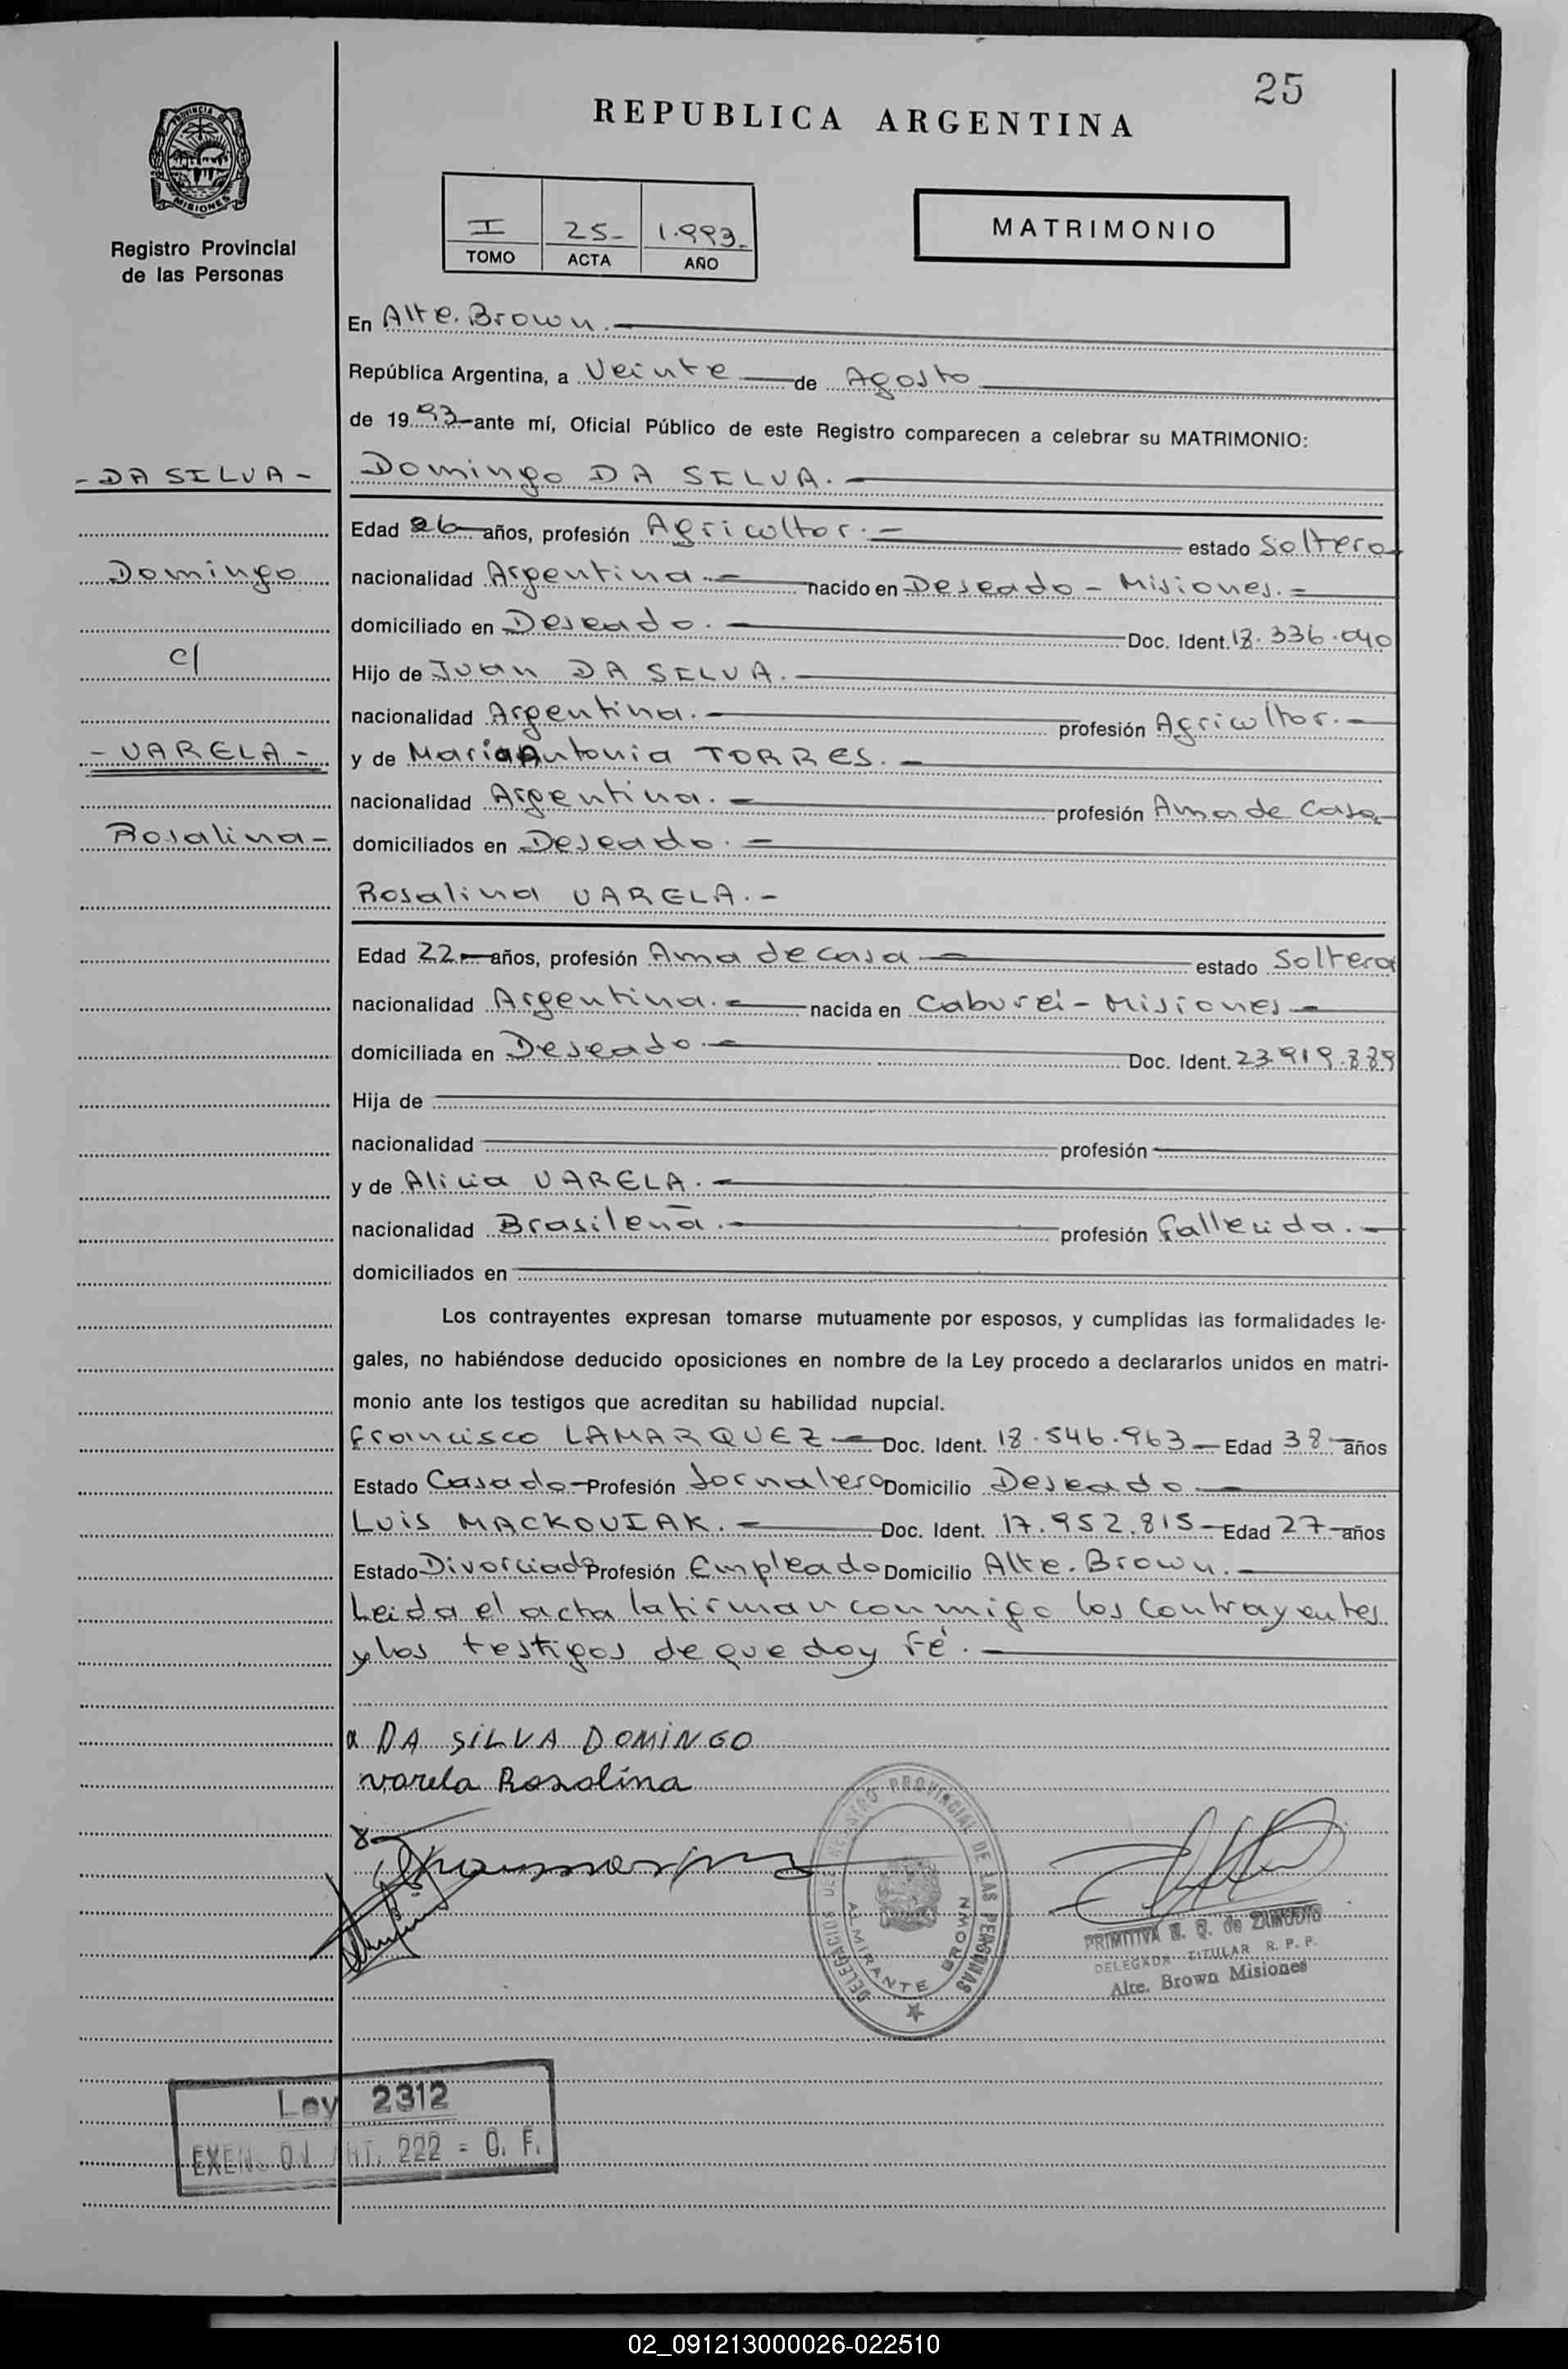 25
REPUBLICA ARGENTINA
PROVINCIA DE MISIONES
Registro Provincial
de las Personas
I 25- 1.993.
TOMO ACTA AÑO
MATRIMONIO
En Alte. Brown.
República Argentina, a Veinte de Agosto
de 1993 ante mí, Oficial Público de este Registro comparecen a celebrar su MATRIMONIO:
- DA SILVA -
Domingo DA SILVA.
Edad 26 años, profesión Agricultor.- estado Soltero
Domingo
nacionalidad Argentina.- nacido en Deseado - Misiones.-
domiciliado en Deseado. Doc. Ident. 18.336.040
c/
Hijo de Juan DA SILVA.
nacionalidad Argentina. profesión Agricultor.-
- VARELA -
y de Maria Antonia TORRES.
nacionalidad Argentina. profesión Ama de Casa
Rosalina-
domiciliados en Deseado.
Rosalina VARELA.-
Edad 22 años, profesión Ama de casa estado Soltera
nacionalidad Argentina.- nacida en Caburei - Misiones
domiciliada en Deseado.- Doc. Ident. 23.919.889
Hija de
nacionalidad profesión
y de Alicia VARELA.
nacionalidad Brasileña. profesión fallecida.-
domiciliados en
Los contrayentes expresan tomarse mutuamente por esposos, y cumplidas las formalidades le-
gales, no habiéndose deducido oposiciones en nombre de la Ley procedo a declararlos unidos en matri-
monio ante los testigos que acreditan su habilidad nupcial.
Francisco LAMARQUEZ.- Doc. Ident. 18.546.963 Edad 38 años
Estado Casado- Profesión Jornalero Domicilio Deseado
Luis MACKOVIAK. Doc. Ident. 17.952.815 Edad 27 años
Estado Divorciado Profesión Empleado Domicilio Alte. Brown.
Leida el acta la firman conmigo los contrayentes
y los testigos de que doy Fé.
DA SILVA DOMINGO
varela Rosalina
DELEGACION DEL REGISTRO PROVINCIAL DE LAS PERSONAS
ALMIRANTE BROWN
PRIMITIVA Q. de ZAMUDIO
DELEGADA TITULAR R. P. P.
Alte. Brown Misiones
Ley 2312
ART. 222 = O. F.
02_091213000026-022510